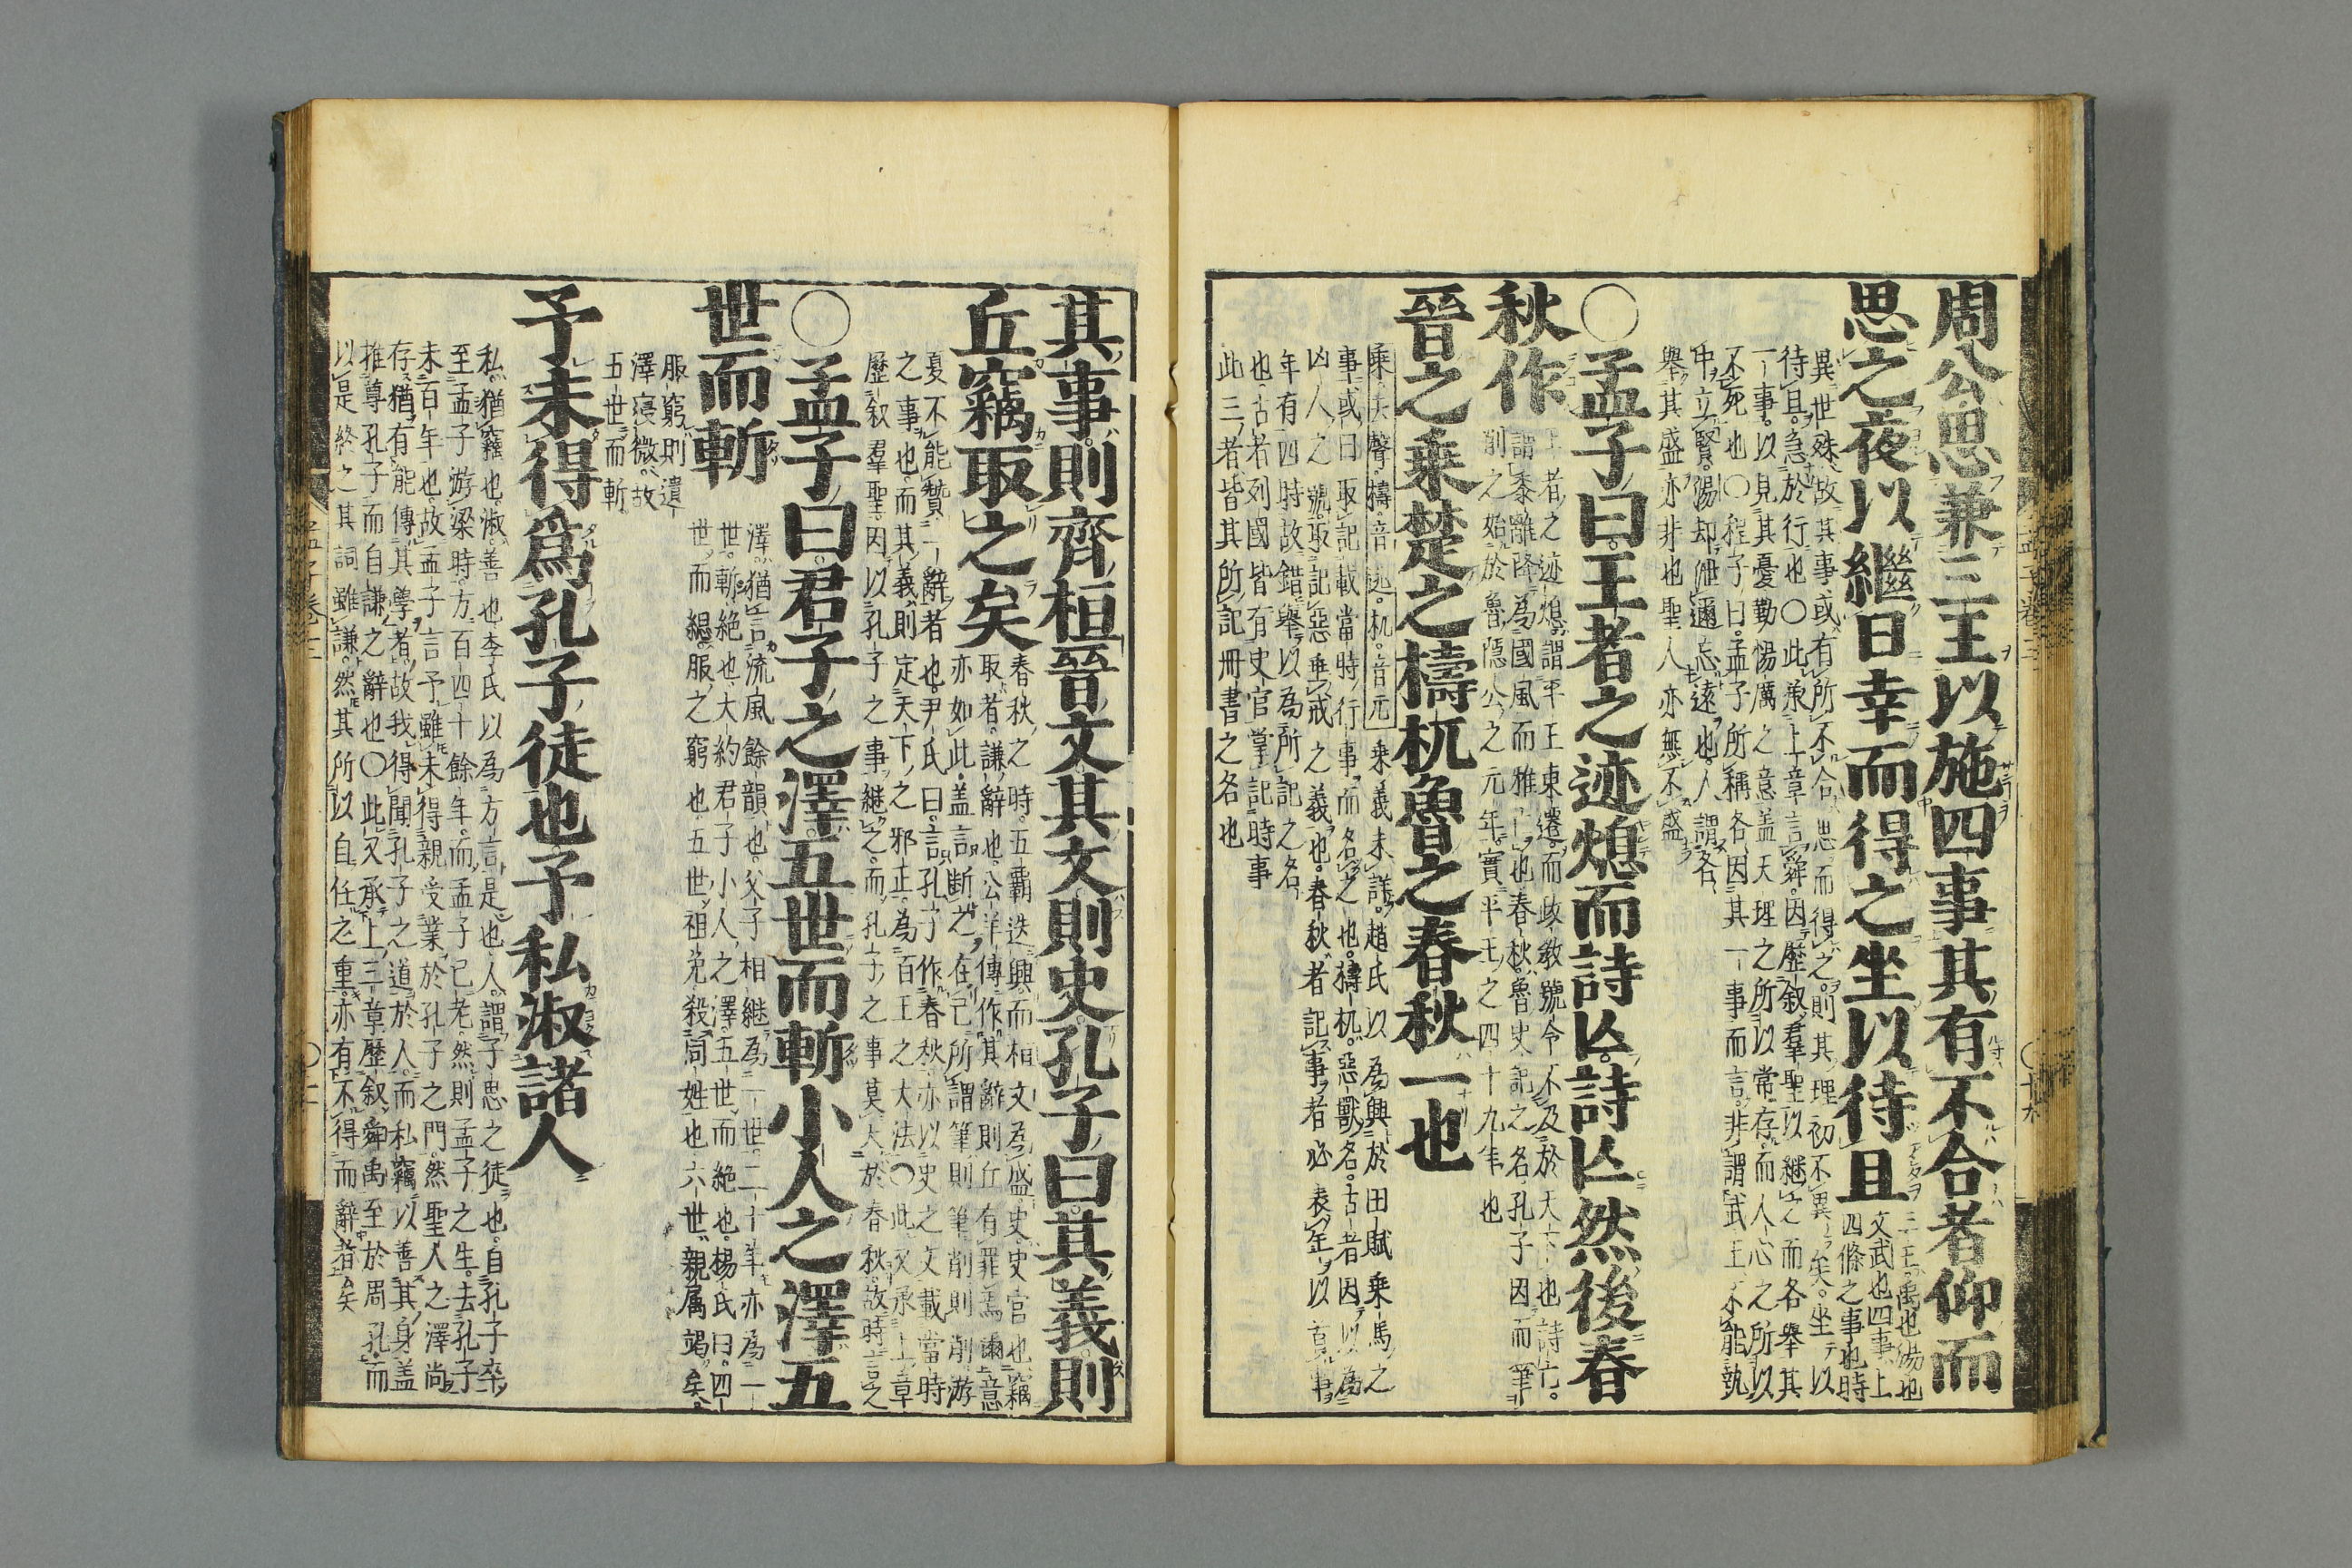 周公思兼三王以施四事其有不合者仰而
思之夜以繼日幸而得之坐以待旦
三王禹也湯也
文武也四事上
四條之事也時
異世殊故其事或有所不合思而得之則其理初不異矣坐以
待旦急於行也〇此承上章言舜因歷叙羣聖以継之而各舉其
一事以見其憂勤惕厲之意盖天理之所以常存而人心之所以
不死也〇程子曰孟子所稱各因其一事而言非謂武王不能執
中立賢湯却泄邇忘遠也人謂各
舉其盛亦非也聖人亦無不盛
〇孟子曰王者之迹熄而詩亾詩亾然後春
秋作
王者之迹熄謂平王東遷而政教號令不及於天下也詩亡
謂黍離降為國風而雅亡也春秋魯史記之名孔子因而筆
削之始於魯隱公之元年實平王之四十九年也
晉之乗楚之檮杌魯之春秋一也
乘去聲檮音逃杌音兀乗義未詳趙氏以為興於田賦乗馬之
事或曰取記載當時行事而名之也檮杌惡獸名古者因以為
凶人之號取記惡垂戒之義也春秋者記事者必表年以首事
年有四時故錯舉以為所記之名
也古者列國皆有史官掌記時事
此三者皆其所記冊書之名也
其事則齊桓晉文其文則史孔子曰其義則
丘竊取之矣
春秋之時五霸迭興而桓文為盛史史官也竊
取者謙辭也公羊傳作其辭則丘有罪焉爾意
亦如此盖言断之在己所謂筆則筆削則削游
夏不能賛一辭者也尹氏曰言孔子作春秋亦以史之文載當時
之事也而其義則定天下之邪正為百王之大法〇此又承上章
歷叙羣聖因以孔子之事継之而孔子之事莫大於春秋故特言之
〇孟子曰君子之澤五世而斬小人之澤五
世而斬
澤猶言流風餘韻也父子相継為一世三十年亦為一
世斬絶也大約君子小人之澤五世而絶也楊氏曰四
世而緦服之窮也五世袒免殺同姓也六世親属竭矣
服窮則遺
澤寖微故
五世而斬
予未得爲孔子徒也予私淑諸人
私猶竊也淑善也李氏以為方言是也人謂子思之徒也自孔子卒
至孟子游梁時方百四十餘年而孟子已老然則孟子之生去孔子
未百年也故孟子言予雖未得親受業於孔子之門然聖人之澤尚
存猶有能傳其學者故我得聞孔子之道於人而私竊以善其身盖
推尊孔子而自謙之辭也〇此又承上三章歷叙舜禹至於周孔而
以是終之其詞雖謙然其所以自任之重亦有不得而辭者矣